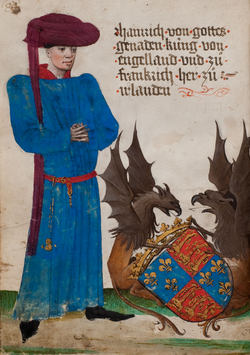 hainrich · von · gottes ·
genaden · kung · von ·
engelland · vnd · zů ·
franckrich · her · zů ·
irlanden